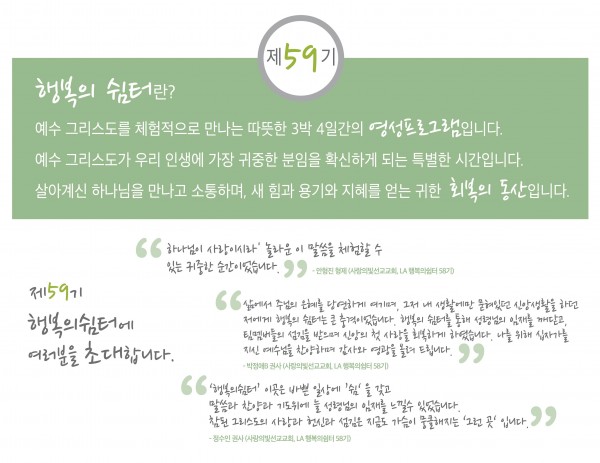 제59기
행복의 쉼터란?
예수 그리스도를 체험적으로 만나는 따뜻한 3박 4일간의 영성프로그램입니다.
예수 그리스도가 우리 인생에 가장 귀중한 분임을 확신하게 되는 특별한 시간입니다.
살아계신 하나님을 만나고 소통하며, 새 힘과 용기와 지혜를 얻는 귀한 회복의 동산입니다.
“하나님이 사랑이시라' 놀라운 이 말씀을 체험할 수
있는 귀중한 순간이었습니다.”
- 안형진 형제 (사랑의빛선교교회, LA 행복의쉼터 58기)
제59기
행복의쉼터에
여러분을 초대합니다.
“삶에서 주님의 은혜를 당연하게 여기며, 그저 내 생활에만 묻혀있던 신앙생활을 하던
저에게 행복의 쉼터는 큰 충격이었습니다. 행복의 쉼터를 통해 성령님의 임재를 깨닫고,
팀멤버들의 섬김을 받으며 신앙의 첫 사랑을 회복하게 하였습니다. 나를 위해 십자가를
지신 예수님을 찬양하며 감사와 영광을 돌려 드립니다.”
- 박정애B 권사 (사랑의빛선교교회, LA 행복의쉼터 58기)
“'행복의쉼터' 이곳은 바쁜 일상에 '쉼'을 갖고
말씀과 찬양과 기도위에 늘 성령님의 임재를 느낄수 있었습니다.
참된 그리스도의 사랑과 헌신과 섬김은 지금도 가슴이 뭉클해지는 '그런 곳' 입니다.”
- 정수인 권사 (사랑의빛선교교회, LA 행복의쉼터 58기)